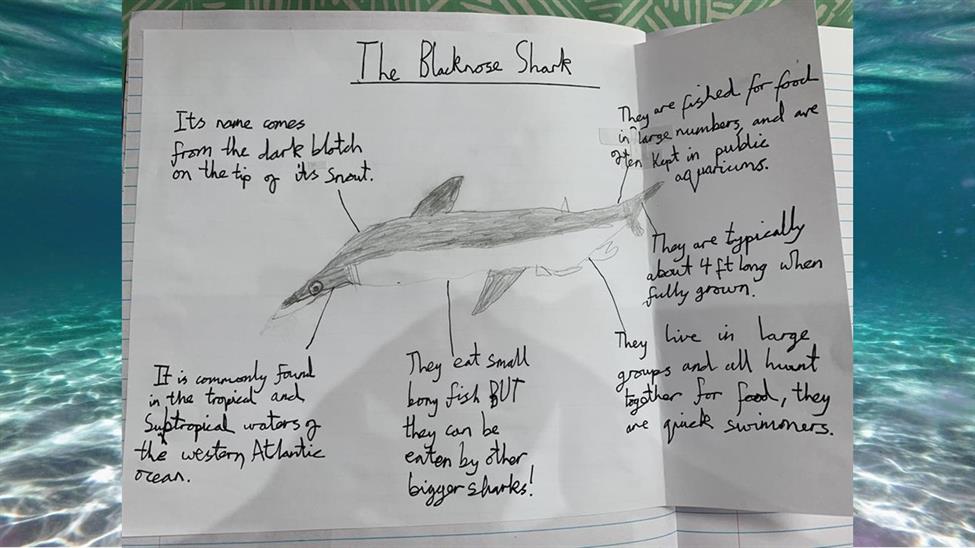 The Blacknose Shark
Its name comes
from the dark blotch
on the tip of its snout.
They are fished for food
in large numbers, and are
often kept in public
aquariums.
They are typically
about 4 ft long when
fully grown.
They live in large
groups and all hunt
together for food, they
are quick swimmers.
They eat small
bony fish BUT
they can be
eaten by other
bigger sharks!
It is commonly found
in the tropical and
Subtropical waters of
the western Atlantic
ocean.